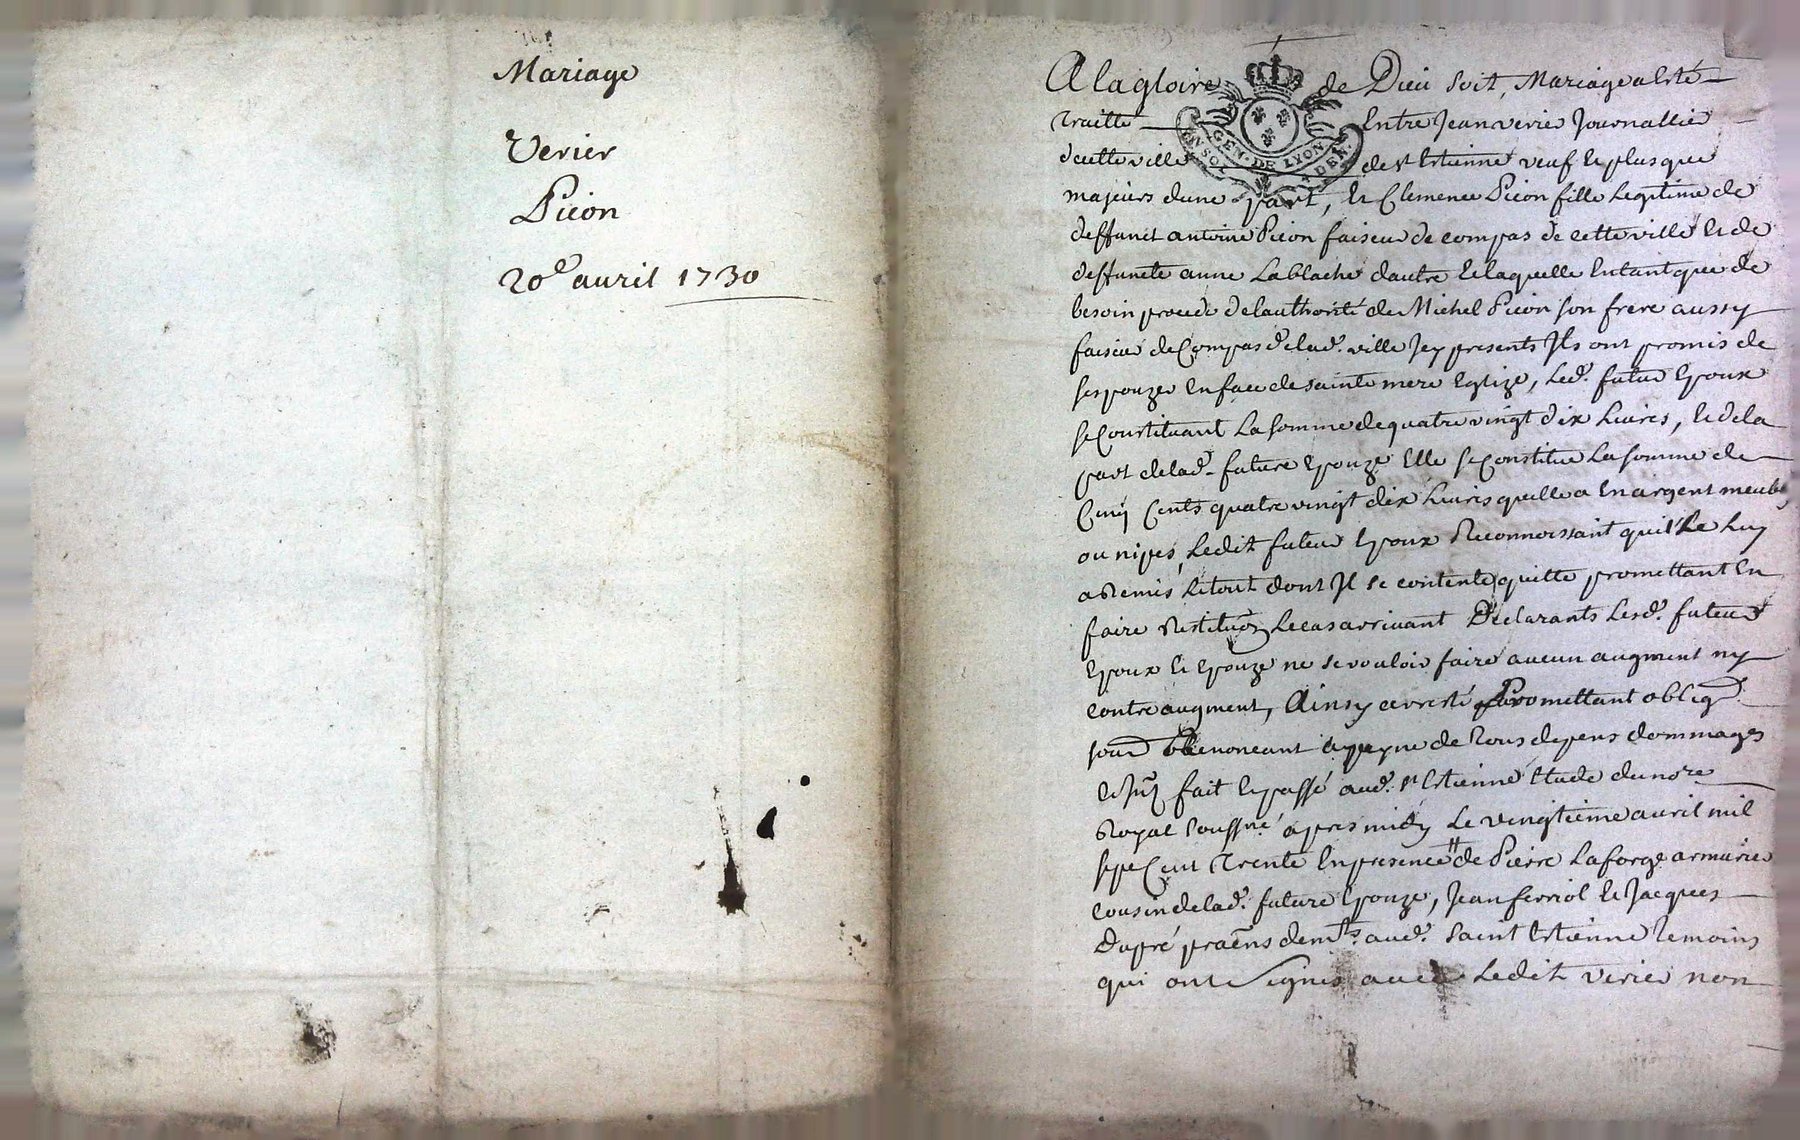 Mariage
Verier
Picon
20e avril 1730
A la gloire de Dieu soit, Mariage a esté
Traitté Entre Jean verier Journallier
de cette ville de st Estienne veuf et plus que
majeurs dune part, Et Clemence Picon fille Legitime de
deffunct antoine Picon faiseur de compas de cette ville Et de
deffuncte anne Lablache dautre Et laquelle Entant que de
besoin procede de lauthorité de Michel Picon son frere aussy
faiseur de Compas de lad. ville Jcy presents Jls ont promis de
sespouzer En face de sainte mere Eglize, Led. futur Epoux
se Constituant La somme de quatre vingt dix Livres, Et de la
part de lad. future Epouze Elle se Constitue La somme de
Cinq Cents quatre vingt dix Livres quelle a En argent meubles
ou nipes, Ledit futur Epoux Reconnoissant quil Le Luy
a Remis, Le tout dont Jl se contente quitte promettant En
faire Restituon Le cas arrivant Declarants Lesd. futeurs
Epoux Et Epouze ne se vouloir faire aucun augment ny
contre augment, Ainsy arresté Promettant obligt.
Renoncant a peyne de tous depens dommages
fait Et passé aud. st Estienne Etude du nore
Royal soussné apres midy Le vingtieme avril mil
sept Cent Trente En presence de Pierre Laforge armurier
cousin de lad. future Epouze, Jean ferriol Et Jacques
Dupré praēns demts. aud. saint Estienne Temoins
qui ont signés avec Ledit verier non
GEN. DE LYON